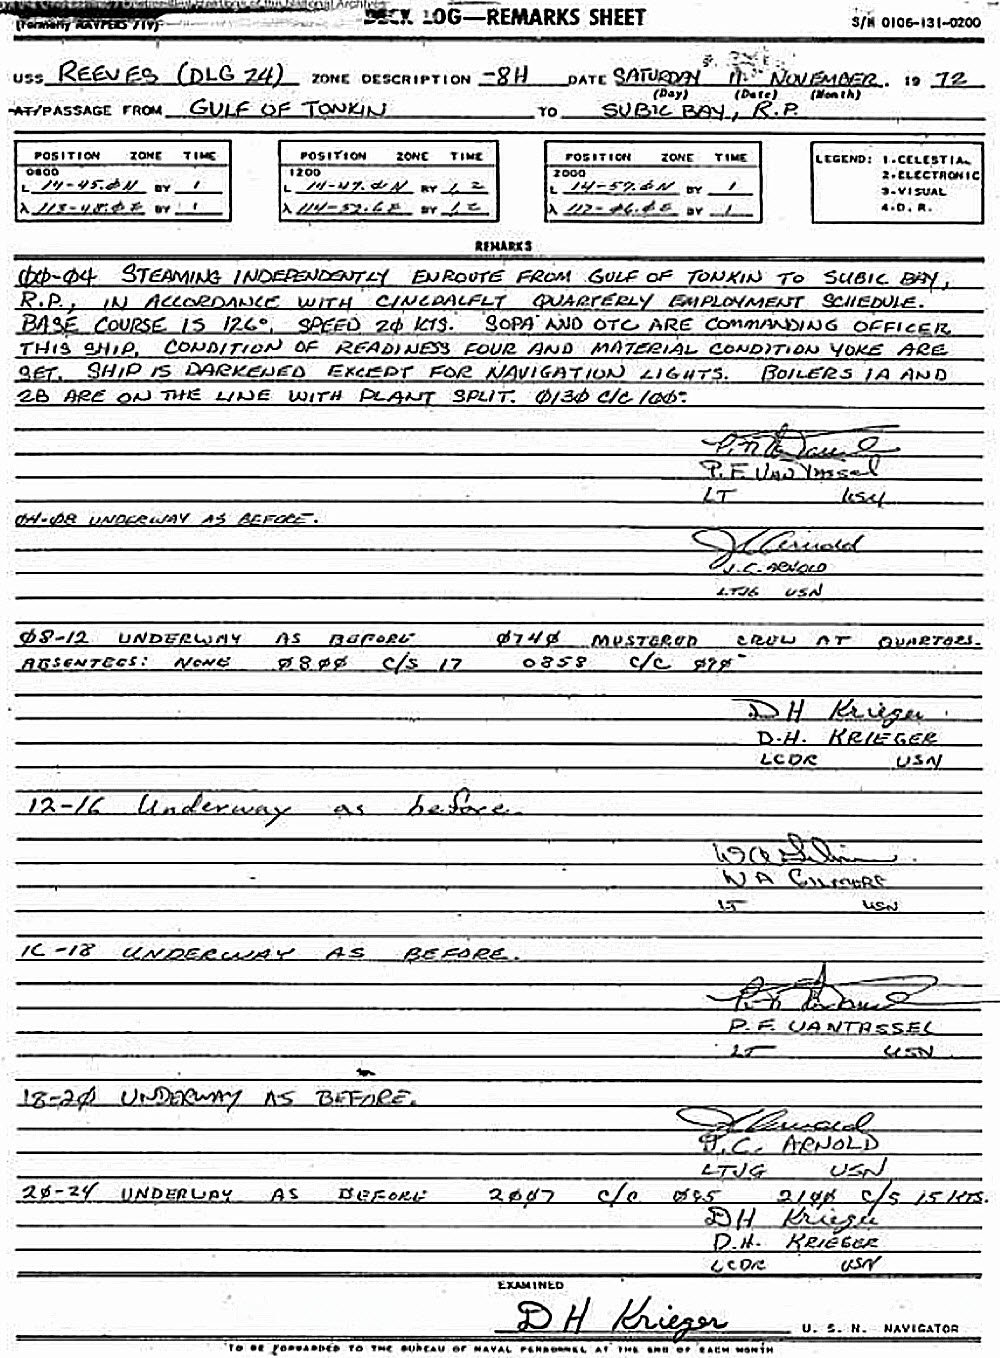 DECK LOG—REMARKS SHEET
(Formerly NAVPERS 719)
S/N 0106-131-0200
USS REEVES (DLG 24) ZONE DESCRIPTION -8H DATE SATURDAY 11 NOVEMBER 19 72
(Day) (Date) (Month)
AT/PASSAGE FROM GULF OF TONKIN TO SUBIC BAY, R.P.
POSITION ZONE TIME
0800
L 14-45.0N BY 1
λ 113-48.0E BY 1
POSITION ZONE TIME
1200
L 14-47.0N BY 1, 2
λ 114-52.6E BY 1, 2
POSITION ZONE TIME
2000
L 14-57.0N BY 1
λ 117-06.0E BY 1
LEGEND: 1-CELESTIAL
2-ELECTRONIC
3-VISUAL
4-D. R.
REMARKS
00-04 STEAMING INDEPENDENTLY ENROUTE FROM GULF OF TONKIN TO SUBIC BAY,
R.P., IN ACCORDANCE WITH CINCPACFLT QUARTERLY EMPLOYMENT SCHEDULE.
BASE COURSE IS 126°, SPEED 20 KTS. SOPA AND OTC ARE COMMANDING OFFICER
THIS SHIP. CONDITION OF READINESS FOUR AND MATERIAL CONDITION YOKE ARE
SET. SHIP IS DARKENED EXCEPT FOR NAVIGATION LIGHTS. BOILERS 1A AND
2B ARE ON THE LINE WITH PLANT SPLIT. 0130 C/C 100°
P. F. VAN TASSEL
LT USN
04-08 UNDERWAY AS BEFORE.
J C Arnold
J. C. ARNOLD
LTJG USN
08-12 UNDERWAY AS BEFORE 0740 MUSTERED CREW AT QUARTERS.
ABSENTEES: NONE 0800 C/S 17 0858 C/C 090°
D H Krieger
D. H. KRIEGER
LCDR USN
12-16 Underway as before.
W A Gilmore
W A GILMORE
LT USN
16-18 UNDERWAY AS BEFORE.
P. F. VANTASSEL
LT USN
18-20 UNDERWAY AS BEFORE.
J C Arnold
J. C. ARNOLD
LTJG USN
20-24 UNDERWAY AS BEFORE 2007 C/C 085 2100 C/S 15 KTS.
D H Krieger
D. H. KRIEGER
LCDR USN
EXAMINED
D H Krieger U. S. N. NAVIGATOR
TO BE FORWARDED TO THE BUREAU OF NAVAL PERSONNEL AT THE END OF EACH MONTH